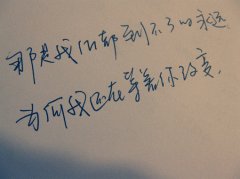 那是我们都到不了的永远
为何我还在等着你改变.